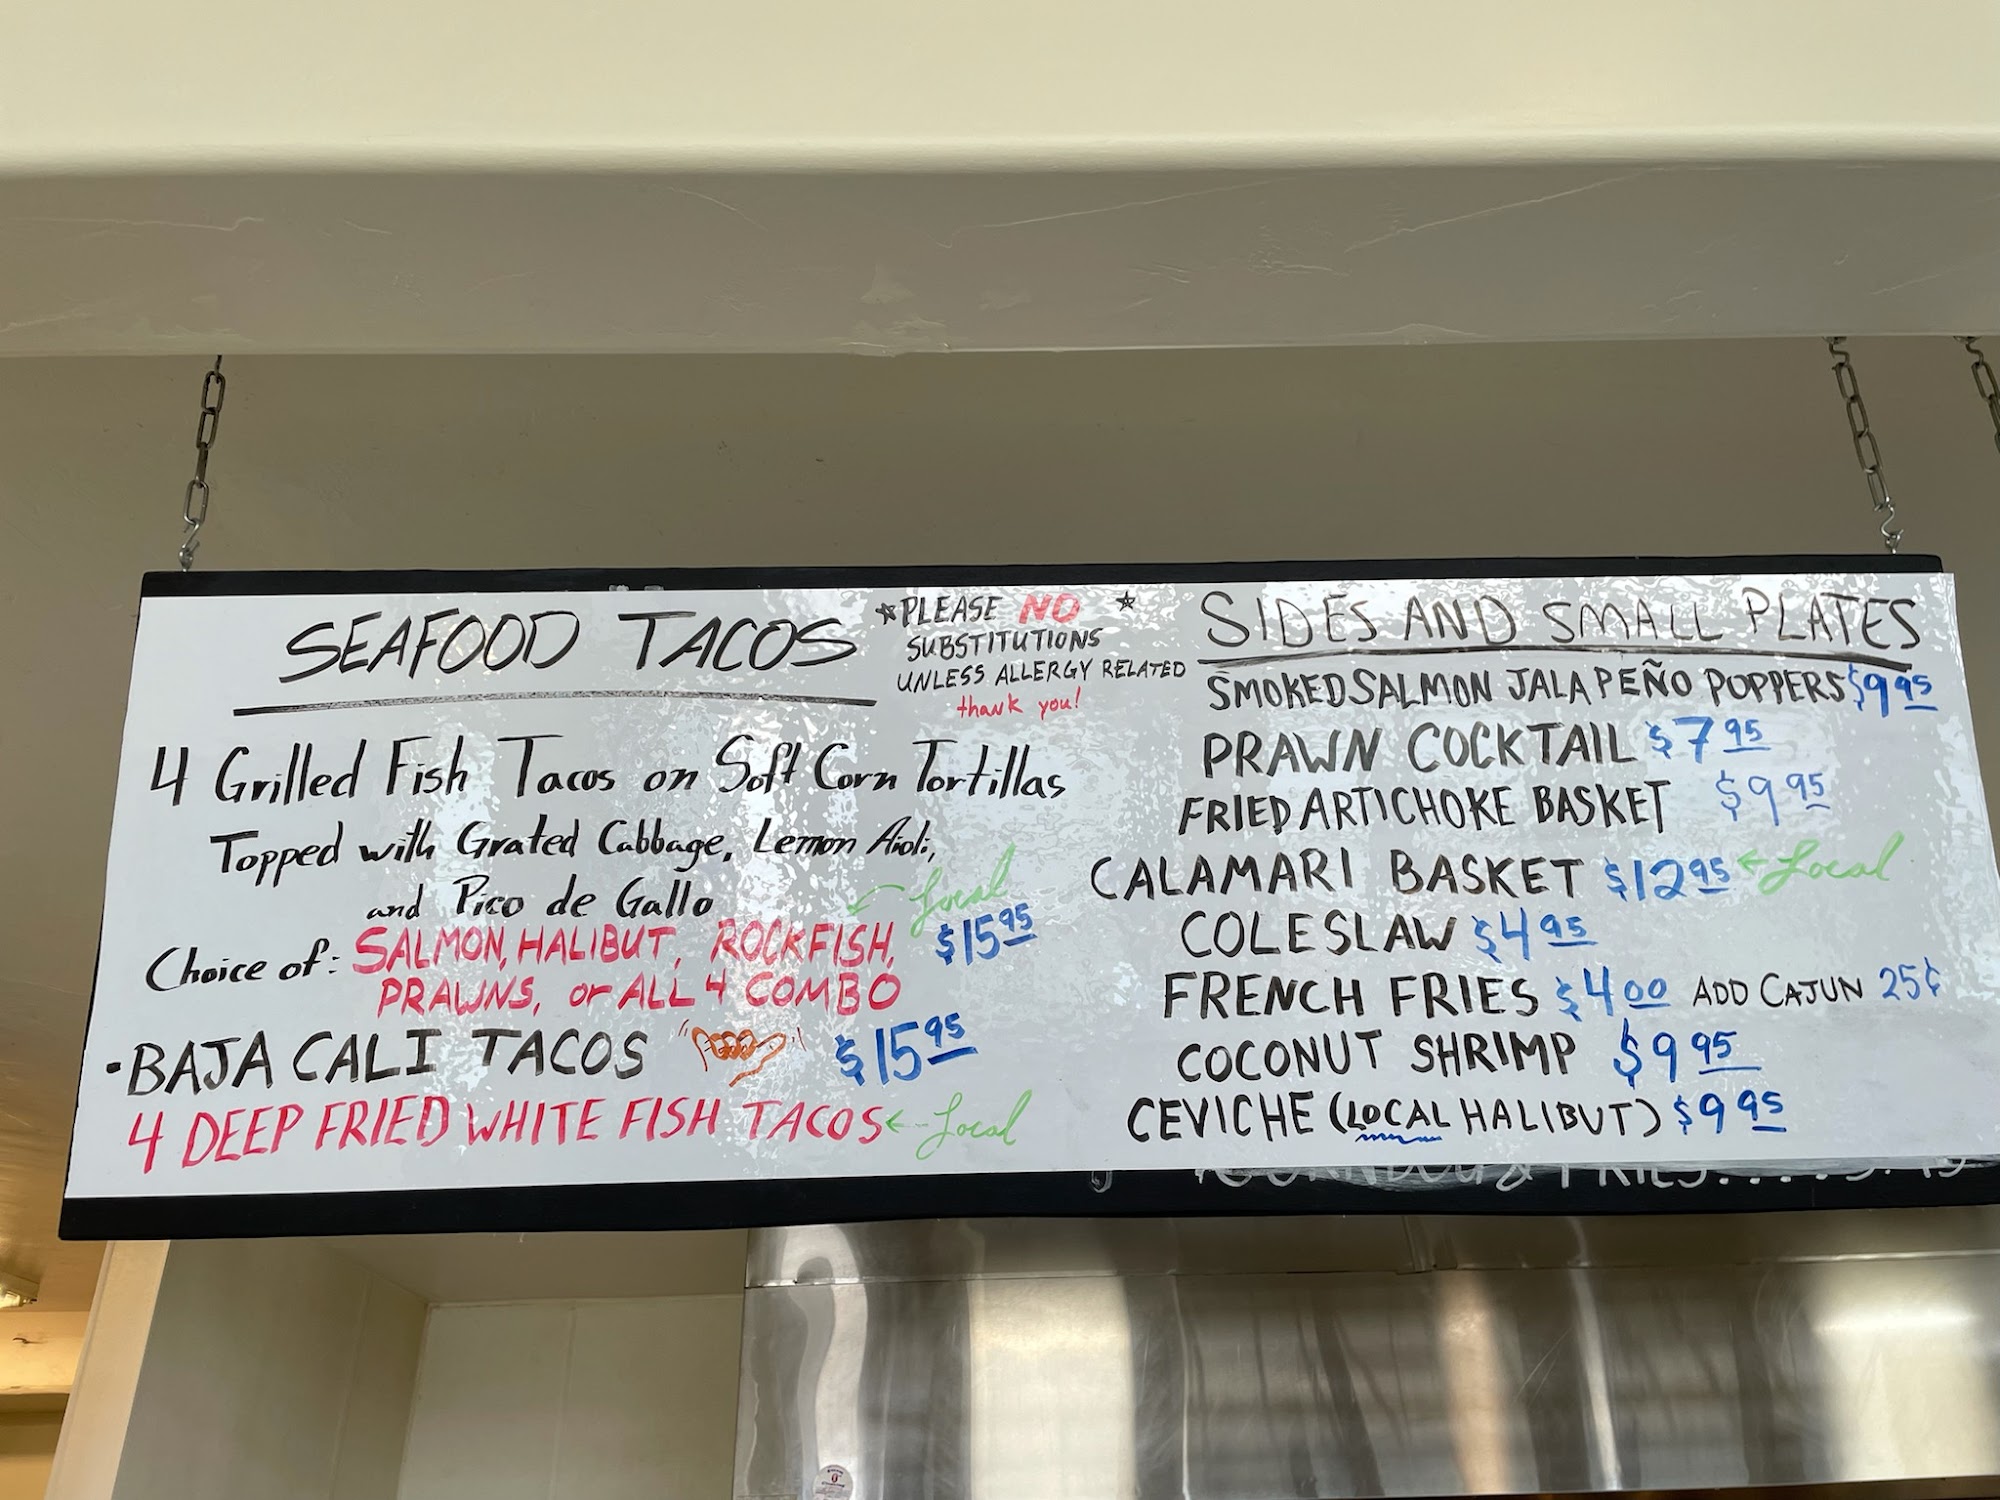 SEAFOOD TACOS
*PLEASE NO *
SUBSTITUTIONS
UNLESS ALLERGY RELATED
thank you!
4 Grilled Fish Tacos on Soft Corn Tortillas
Topped with Grated Cabbage, Lemon Aioli,
and Pico de Gallo
Local
Choice of: SALMON, HALIBUT, ROCKFISH, $15.95
PRAWNS, or ALL 4 COMBO
·BAJA CALI TACOS $15.95
4 DEEP FRIED WHITE FISH TACOS ← Local
SIDES AND SMALL PLATES
SMOKED SALMON JALAPEÑO POPPERS $9.95
PRAWN COCKTAIL $7.95
FRIED ARTICHOKE BASKET $9.95
CALAMARI BASKET $12.95 ← Local
COLESLAW $4.95
FRENCH FRIES $4.00 ADD CAJUN 25¢
COCONUT SHRIMP $9.95
CEVICHE (LOCAL HALIBUT) $9.95